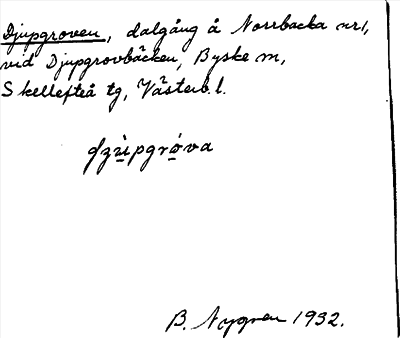 Djupgroven, dalgång å Norrbacka nr 1,
vid Djupgrovbäcken, Byske sn,
Skellefteå tg, Västerb. l.
B. Nygren 1932.